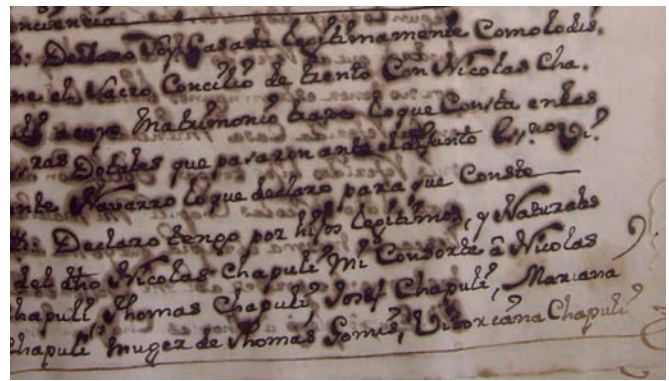 Conciencia
Declaro Soy Casada legitimamente Como lo dis.
ne el Sacro Concilio de trento Con Nicolas Cha.
a cuyo Matrimonio traxe lo que Consta en las
ras Dotales que pasaron ante el difunto Es.no Vi.
nte Navarro lo que declaro para que Conste
Declaro tengo por hijos legitimos, y Naturales
del dho Nicolas Chapuli Mi Consorte â Nicolas
Chapuli Thomas Chapuli, Josef Chapuli, Mariana
Chapuli muger de Thomas Gomis, Vitoriana Chapuli